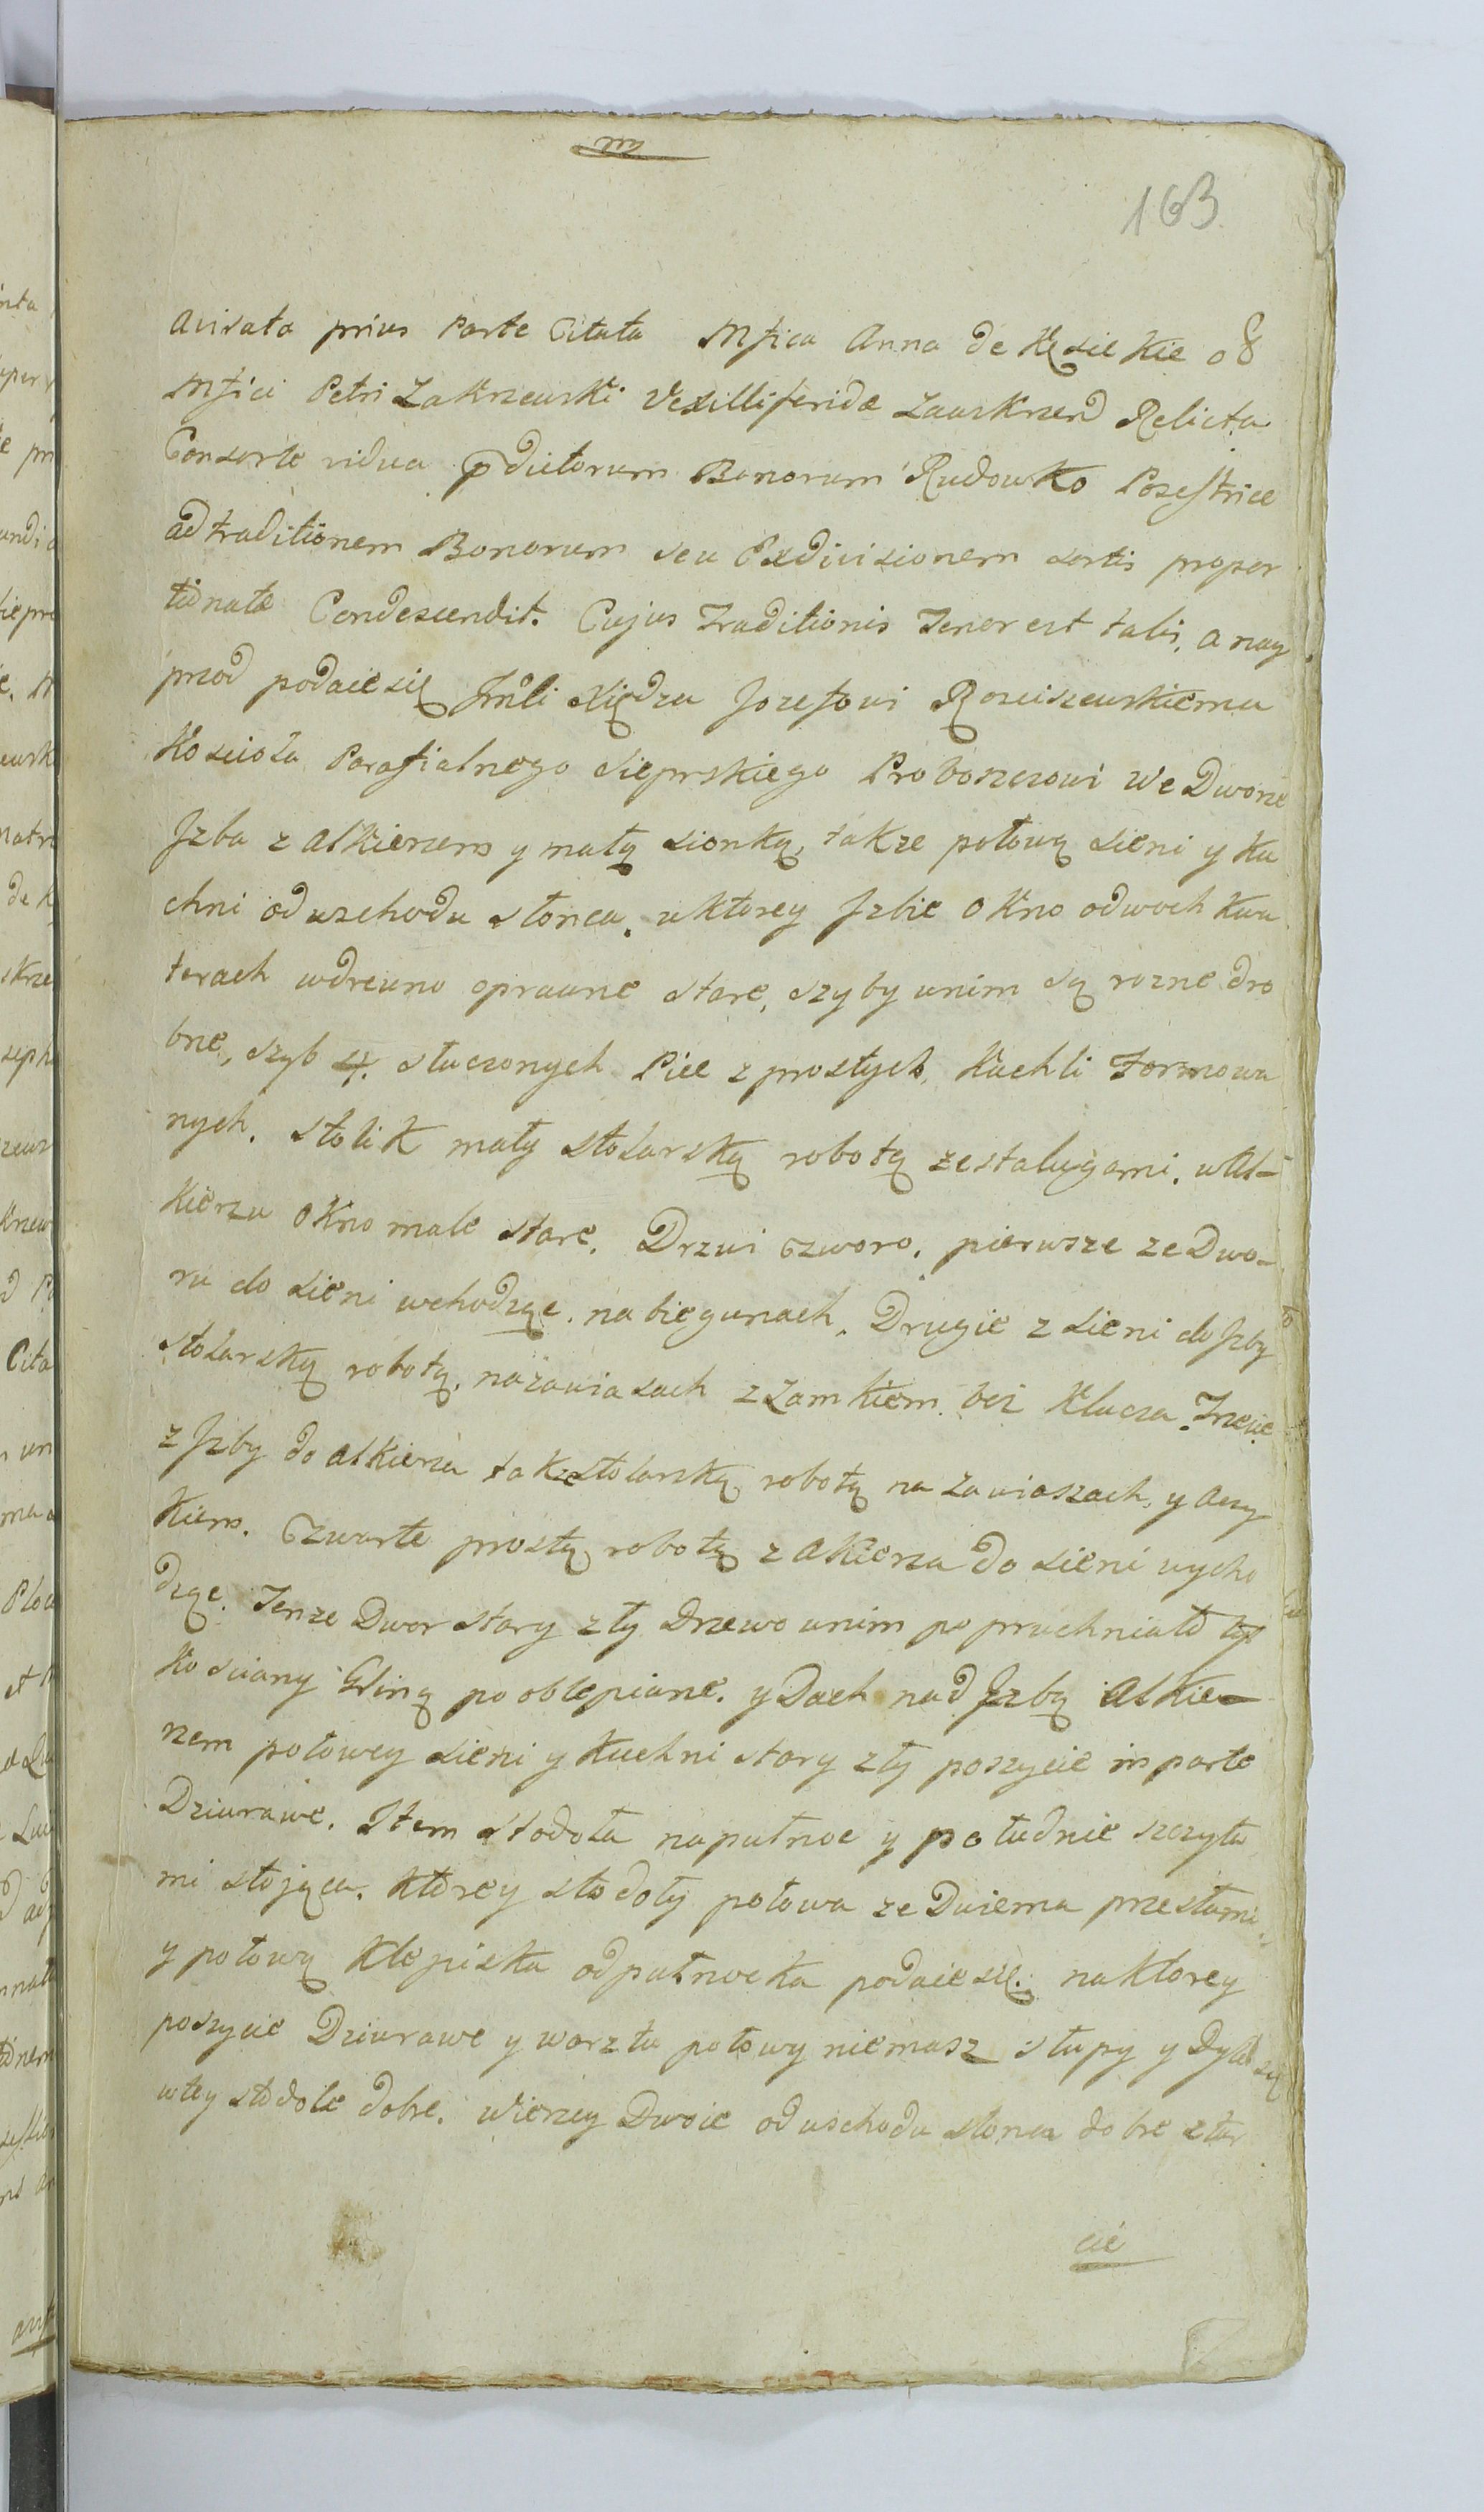 m
163
avisata prius Parte Citata Mfica Anna de Kęsickie o8
Mfici Petri Zakrzewski Vexilliferidæ Zawskrzen Relicta
Consorte vidua p̄dictorum Bonorum Rudowko Posestrice
ad traditionem Bonorum seu Exdivisionem sortis propor
tionatæ Condescendit. Cujus Traditionis Tenor est talis, a nay
przod podaie się Jmći Xiędzu Jozefowi Rosciszewskiemu
Koscioła Parafialnego Sieprskiego Proboszczowi We Dworze
Jzba z Alkierzem y małą sionką, także połową sieni y Ku
chni od wschodu słonca. w ktorey Jzbie Okno o dwoch kwa
terach w drewno oprawne stare, szyby w nim są rozne dro
bne, szyb 4. stuczonych Piec z prostych, Kachli formowa
nych. Stolik mały stolarską robotą ze stalugami. w Al-
Kierzu Okno małe stare. Drzwi czworo. pierwsze ze Dwo-
ru do sieni wchodzące. na biegunach. Drugie z sieni do Jzby
stolarską robotą. na zawiasach z Zamkiem. bez Klucza. Trzecie
z Jzby do Alkierza także stolarską robotą na Zawiaszach, y Aczy
kiem. Czwarte prostą robotą z Alkierza do sieni wycho
dzące. Tenze Dwor stary zły Drzewo w nim poprzuchniało tyl
ko sciany Gliną pooblepiane. y Dach nad Jzbą Alkie-
rzem połowey sieni y Kuchni stary zły poszycie in parte
Dziurawe. Item stodoła na pułnoc y południe szczyta
mi stojąca. Ktorey stodoły połowa ze Dwiema przesłami
y połową Klepiska od pułnocka podaie się. na ktorey
poszycie Dziurawe y warzta połowy niemasz słupy y Dyle są
w tey stodole dobre. Wierzey Dwoie od wschodu słonca dobre z tar
cic